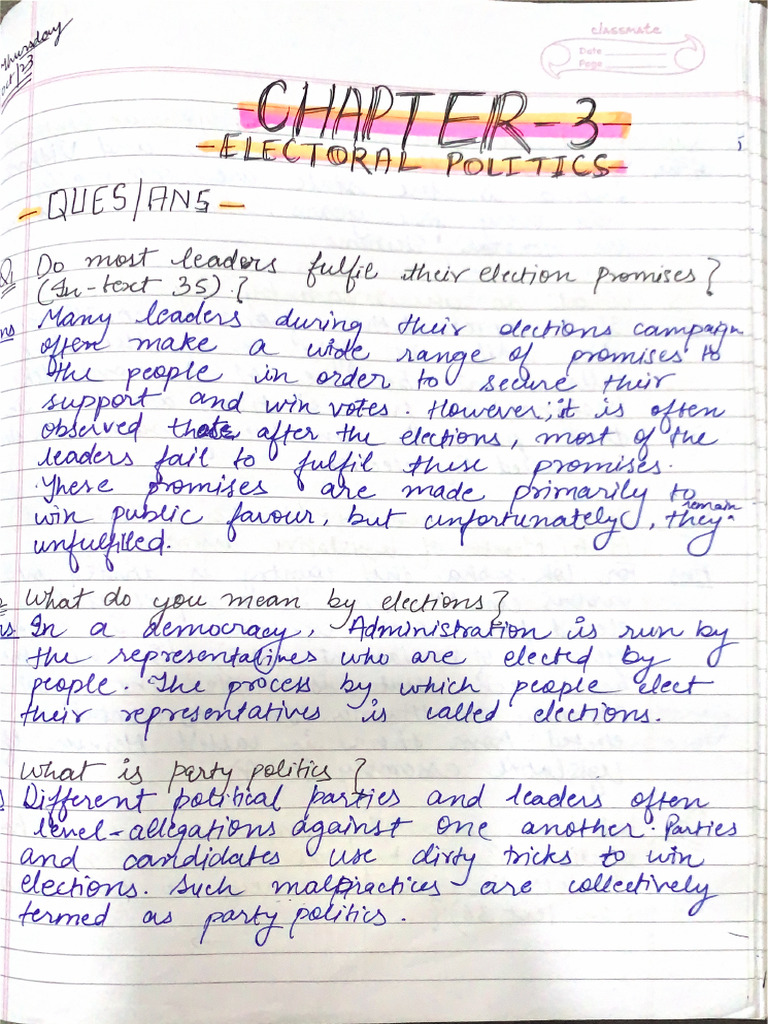 Thursday
Oct/23
classmate
Date
Page
CHAPTER-3
- ELECTORAL POLITICS -
- QUES/ANS -
Q1 Do most leaders fulfil their election promises?
(In-text 35).?
Ans Many leaders during their elections campaign
often make a wide range of promises to
the people in order to secure their
support and win votes. However, it is often
observed that after the elections, most of the
leaders fail to fulfil these promises.
These promises are made primarily to
win public favour, but unfortunately, they remain
unfulfilled.
What do you mean by elections?
In a democracy, Administration is run by
the representatives who are elected by
people. The process by which people elect
their representatives is called elections.
What is party politics?
Different political parties and leaders often
level-allegations against one another. Parties
and candidates use dirty tricks to win
elections. Such malpractices are collectively
termed as party politics.